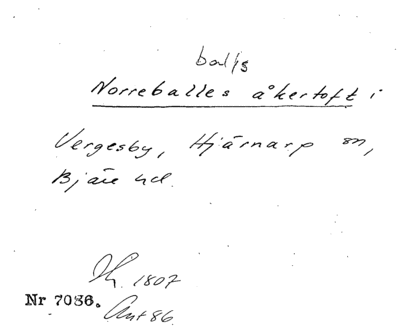 balls
Norreballes åkertoft i
Vergesby, Hjärnarp sn,
Bjäre hd.
1807
Nr 7086.
Ant 86